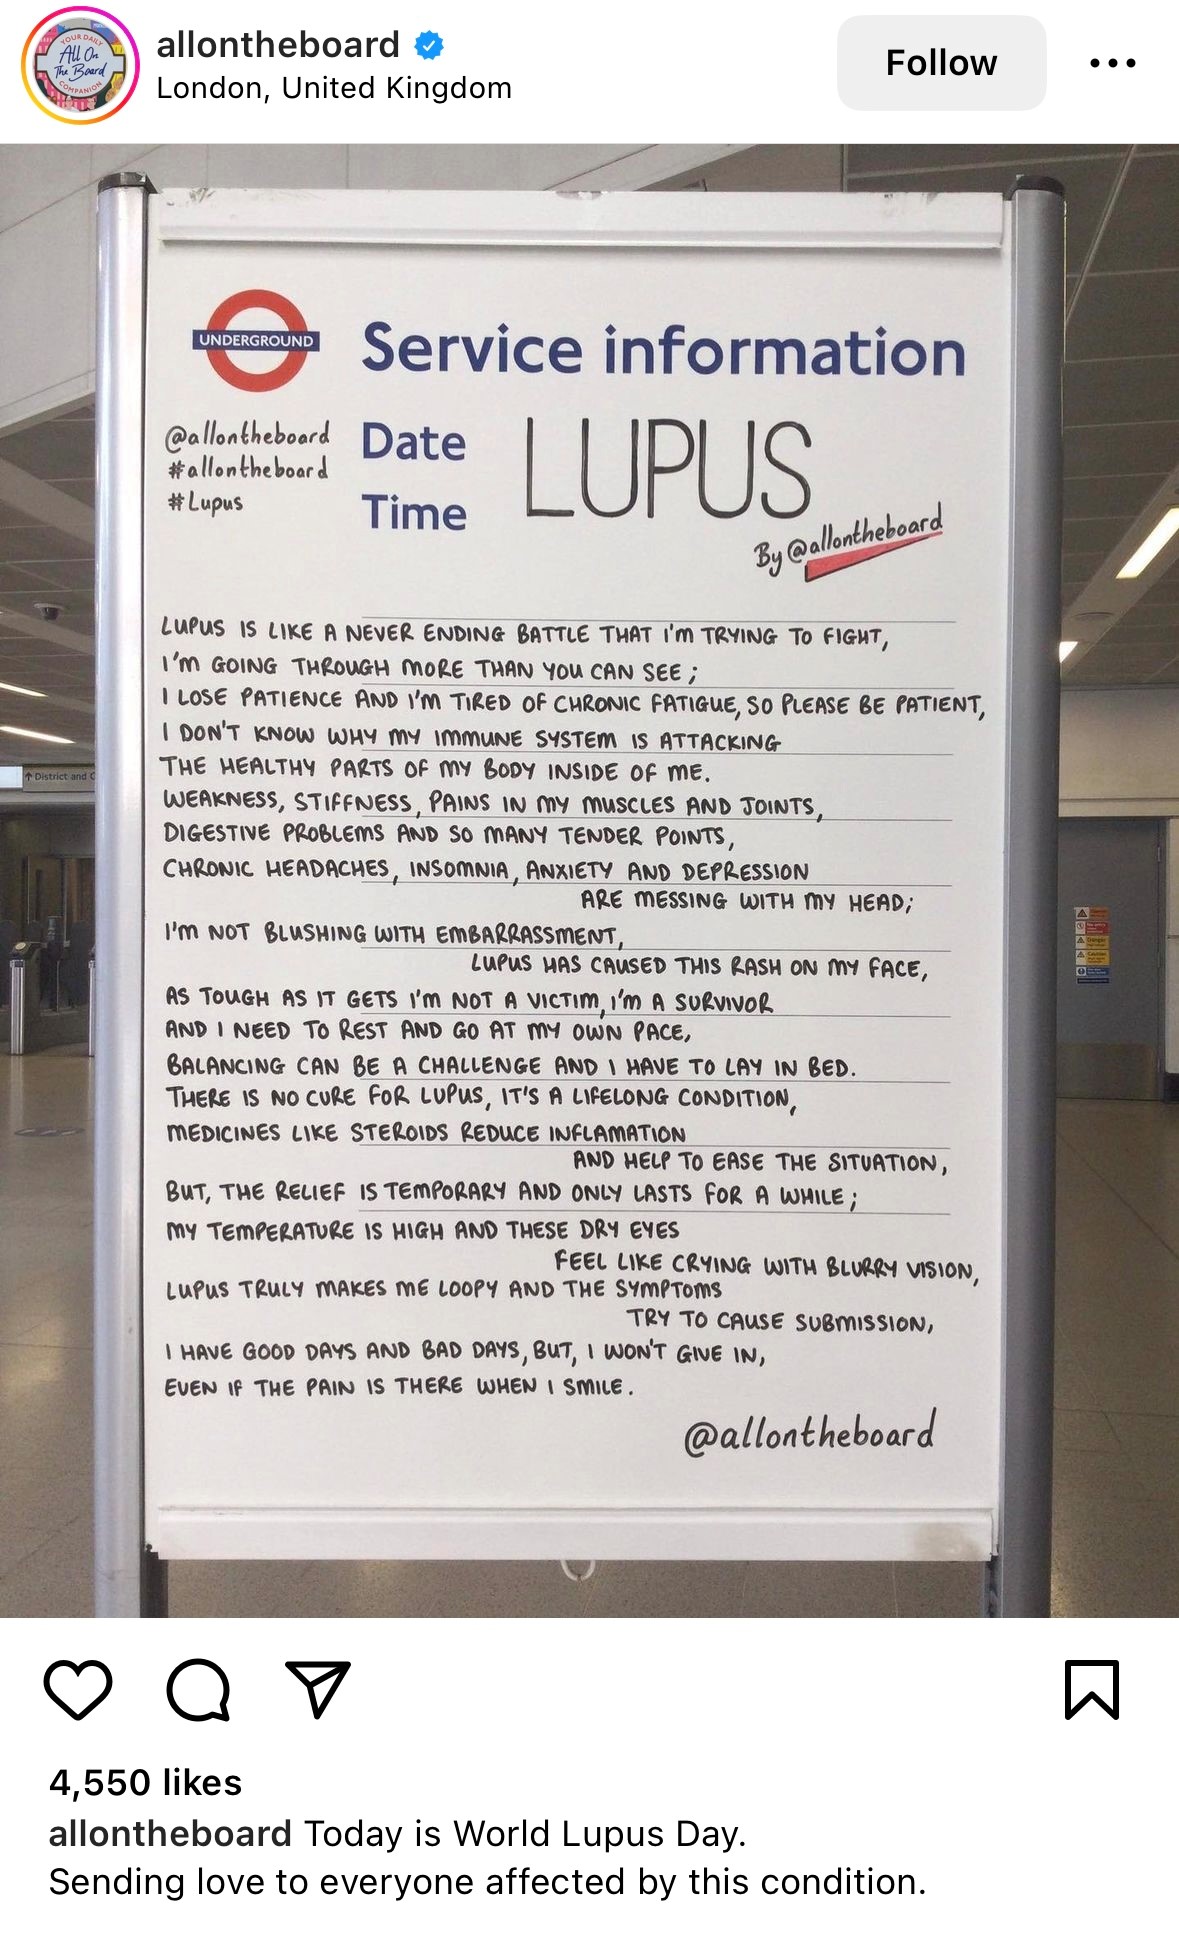 YOUR DAILY
All On
The Board
COMPANION
allontheboard
London, United Kingdom
Follow
UNDERGROUND
Service information
@allontheboard
#allontheboard
#Lupus
Date
Time
LUPUS
By @allontheboard
LUPUS IS LIKE A NEVER ENDING BATTLE THAT I'M TRYING TO FIGHT,
I'M GOING THROUGH MORE THAN YOU CAN SEE;
I LOSE PATIENCE AND I'M TIRED OF CHRONIC FATIGUE, SO PLEASE BE PATIENT,
I DON'T KNOW WHY MY IMMUNE SYSTEM IS ATTACKING
THE HEALTHY PARTS OF MY BODY INSIDE OF ME.
WEAKNESS, STIFFNESS, PAINS IN MY MUSCLES AND JOINTS,
DIGESTIVE PROBLEMS AND SO MANY TENDER POINTS,
CHRONIC HEADACHES, INSOMNIA, ANXIETY AND DEPRESSION
ARE MESSING WITH MY HEAD;
I'M NOT BLUSHING WITH EMBARRASSMENT,
LUPUS HAS CAUSED THIS RASH ON MY FACE,
AS TOUGH AS IT GETS I'M NOT A VICTIM, I'M A SURVIVOR
AND I NEED TO REST AND GO AT MY OWN PACE,
BALANCING CAN BE A CHALLENGE AND I HAVE TO LAY IN BED.
THERE IS NO CURE FOR LUPUS, IT'S A LIFELONG CONDITION,
MEDICINES LIKE STEROIDS REDUCE INFLAMATION
AND HELP TO EASE THE SITUATION,
BUT, THE RELIEF IS TEMPORARY AND ONLY LASTS FOR A WHILE;
MY TEMPERATURE IS HIGH AND THESE DRY EYES
FEEL LIKE CRYING WITH BLURRY VISION,
LUPUS TRULY MAKES ME LOOPY AND THE SYMPTOMS
TRY TO CAUSE SUBMISSION,
I HAVE GOOD DAYS AND BAD DAYS, BUT, I WON'T GIVE IN,
EVEN IF THE PAIN IS THERE WHEN I SMILE.
@allontheboard
District and
4,550 likes
allontheboard Today is World Lupus Day.
Sending love to everyone affected by this condition.